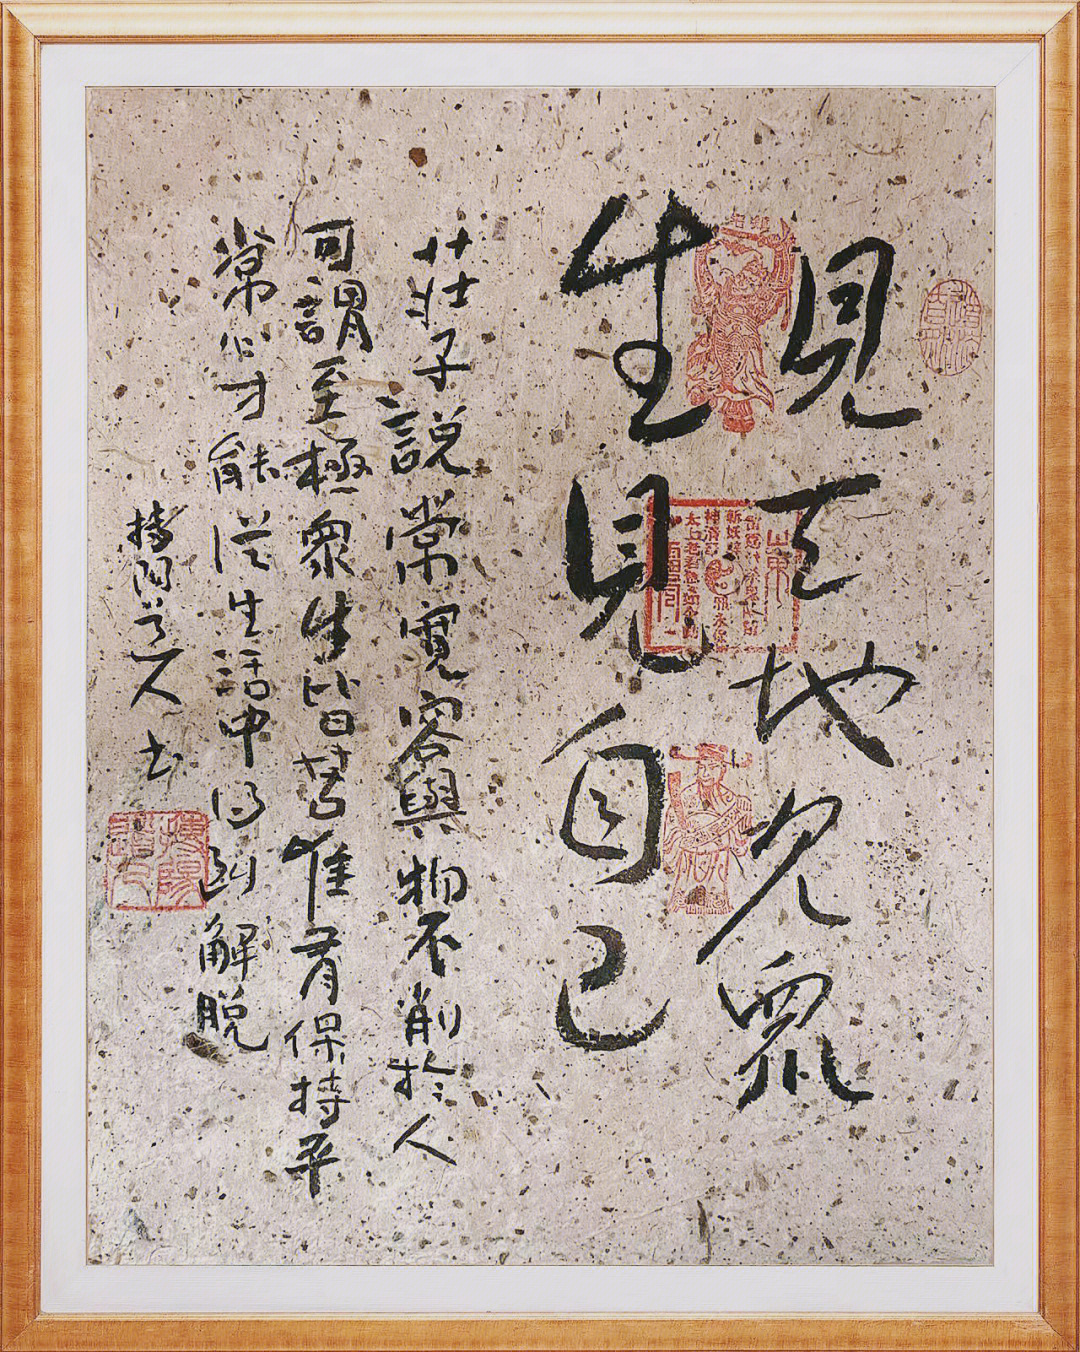 見天地見眾
生見自己
莊子說常寬容與物不削於人
可謂至極眾生皆苦唯有保持平
常心才能從生活中得到解脫
摶陽道人書